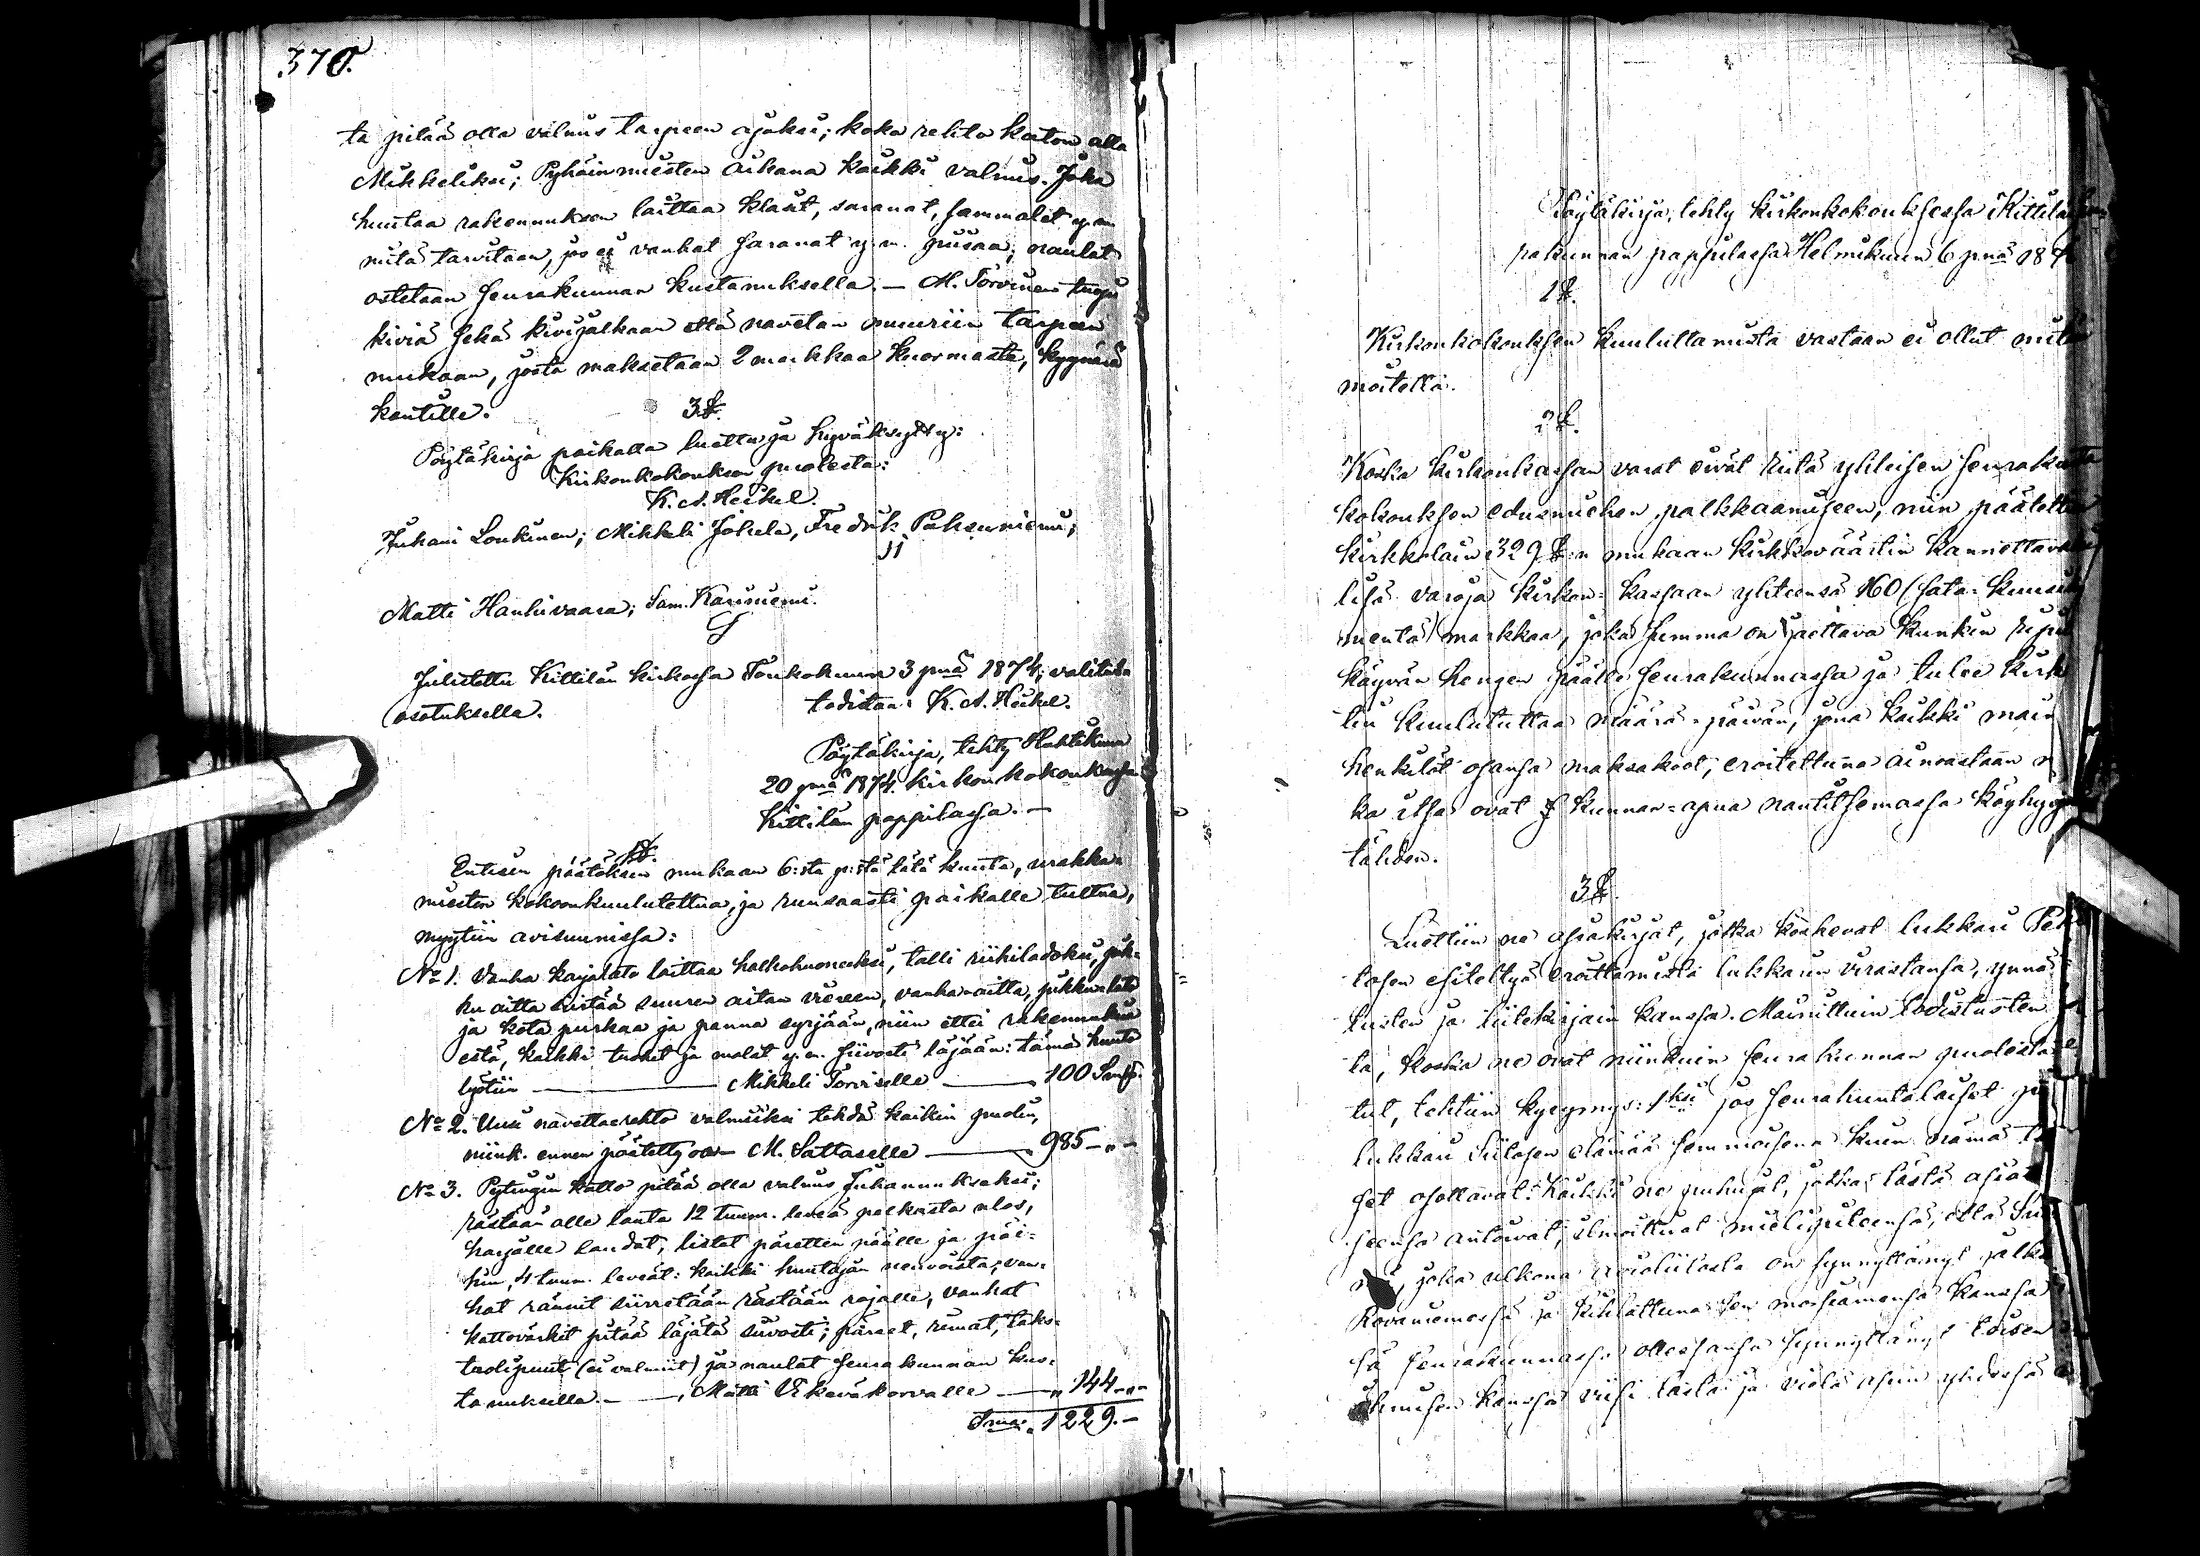 370.
ta pitää olla valmis tarpeen ajaksi; koko rehto katon alla
Mikkeliksi; Pyhäinmiesten aikana kaikki valmis. Joka
huutaa rakennuksen laittaa klasit, saranat, sammalet y.m
mitä tarvitaan, jos ei vanhat saranat y.m. piisaa; naulat
ostetaan seurakunnan kustannuksella. — M. Torvinen tuopi
kiviä sekä kivijalkaan että navetan muuriin tarpeen
mukaan, josta maksetaan 2 markkaa kuormasta, kyynärä
kantille.
3 §.
Pöytäkirja paikalla luettu ja hyväksytty:
Kirkonkokouksen puolesta:
K. A. Heikel.
Juhani Loukinen; Mikkeli Jokela, Fredrik Paksuniemi;
Matti Hanhivaara; Sam. Kariniemi.
Julistettu Kittilän kirkossa Toukokuun 3 pnä 1874; valitus
osotuksella. todistaa: K. A. Heikel.
Pöytäkirja, tehty Huhtikuun
20 pnä 1874 kirkonkokouksessa
Kittilän pappilassa. —
1 §.
Entisen päätöksen mukaan 6:sta p:stä tätä kuuta, urakka-
miesten kokoonkuulutettua, ja runsaasti paikalle tultua,
myytiin avisunissa:
No 1. Vanha karjalato laittaa halkohuoneeksi, talli riihiladoksi, puh-
ku aitta siirtää suuren aitan viereen, vanha-aitta,
ja kota purkaa ja panna syrjään, niin ettei rakennuksia
estä, kaikki tuohit ja malat y.m. siivosti läjään: tämä huuto
lyötiin — Mikkeli Torviselle — 100 Smk.
No 2. Uusi navettarehto valmiiksi tehdä kaikin puolin,
niink. ennen päätetty on — M. Sattaselle — 985 — " —
No 3. Pytingin katto pitää olla valmis Juhannukseksi;
rästään alle lauta 12 tuum. leveä palkista ulos,
harjalle laudat, listat päretten päälle ja päi-
hin, 4 tuum. leveät: kaikki huutajan neuvoista; van-
hat rännit siirretään rästään rajalle, vanhat
kattovärkit pitää läjätä siivosti; päreet, rimat, taks-
taolipuut (ei valmiit) ja naulat seurakunnan kus-
tannuksella. — Matti Vikeväkorvalle — " 144 — " —
Sma. 1229. —
Pöytäkirja, tehty kirkonkokouksessa Kittilän
pakunnan pappilassa Helmikuun 6 pnä 18
1 §.
Kirkonkokouksen kuuluttamista vastaan ei ollut mitä
moitetta.
2 §.
Koska kirkonkassan varat eivät riitä yhteisen seurakunta
kokouksen edusmiehen palkkaamiseen, niin päätettiin
kirkkolain 329 §:n mukaan kirkkoväärtin kannettavaksi
lisä varoja kirkon-kassaan yhteensä 160 (sata-kuusi
mentä) markkaa, joka summa on jaettava kunkin ripil
käyvän hengen päälle seurakunnassa ja tulee kirk
tin kuuluttaa määrä-päivän, jona kaikki main
henkilöt osansa maksakoot, eroitettuna ainoastaan n
ka itse ovat kunnan-apua nautitsemassa köyhyy
tähden.
3 §.
Luettiin ne asiakirjat, jotka koskevat lukkari
tosen esitettyä eroittamista lukkarin virastansa, ynnä
tusten ja liitekirjain kanssa. Mainittuin todistusten
ta, koska ne ovat niinkuin seurakunnan puolesta
tut, tehtiin kysymys: 1ksi jos seurakuntalaiset
lukkari Siitosen elämää semmoisena kuin nämä
set osottavat: kaikki ne puhujat, jotka tästä asia
seensa antoivat, ilmoittivat mielipiteensä, että
joka ulkona avioliitosta on synnyttänyt
Rovaniemessä ja kihlattuna sen morsiamensa kanssa
sä seurakunnassa ollessansa synnyttänyt toisen
ihmisen kanssa viisi lasta ja vielä asuu yhdessä